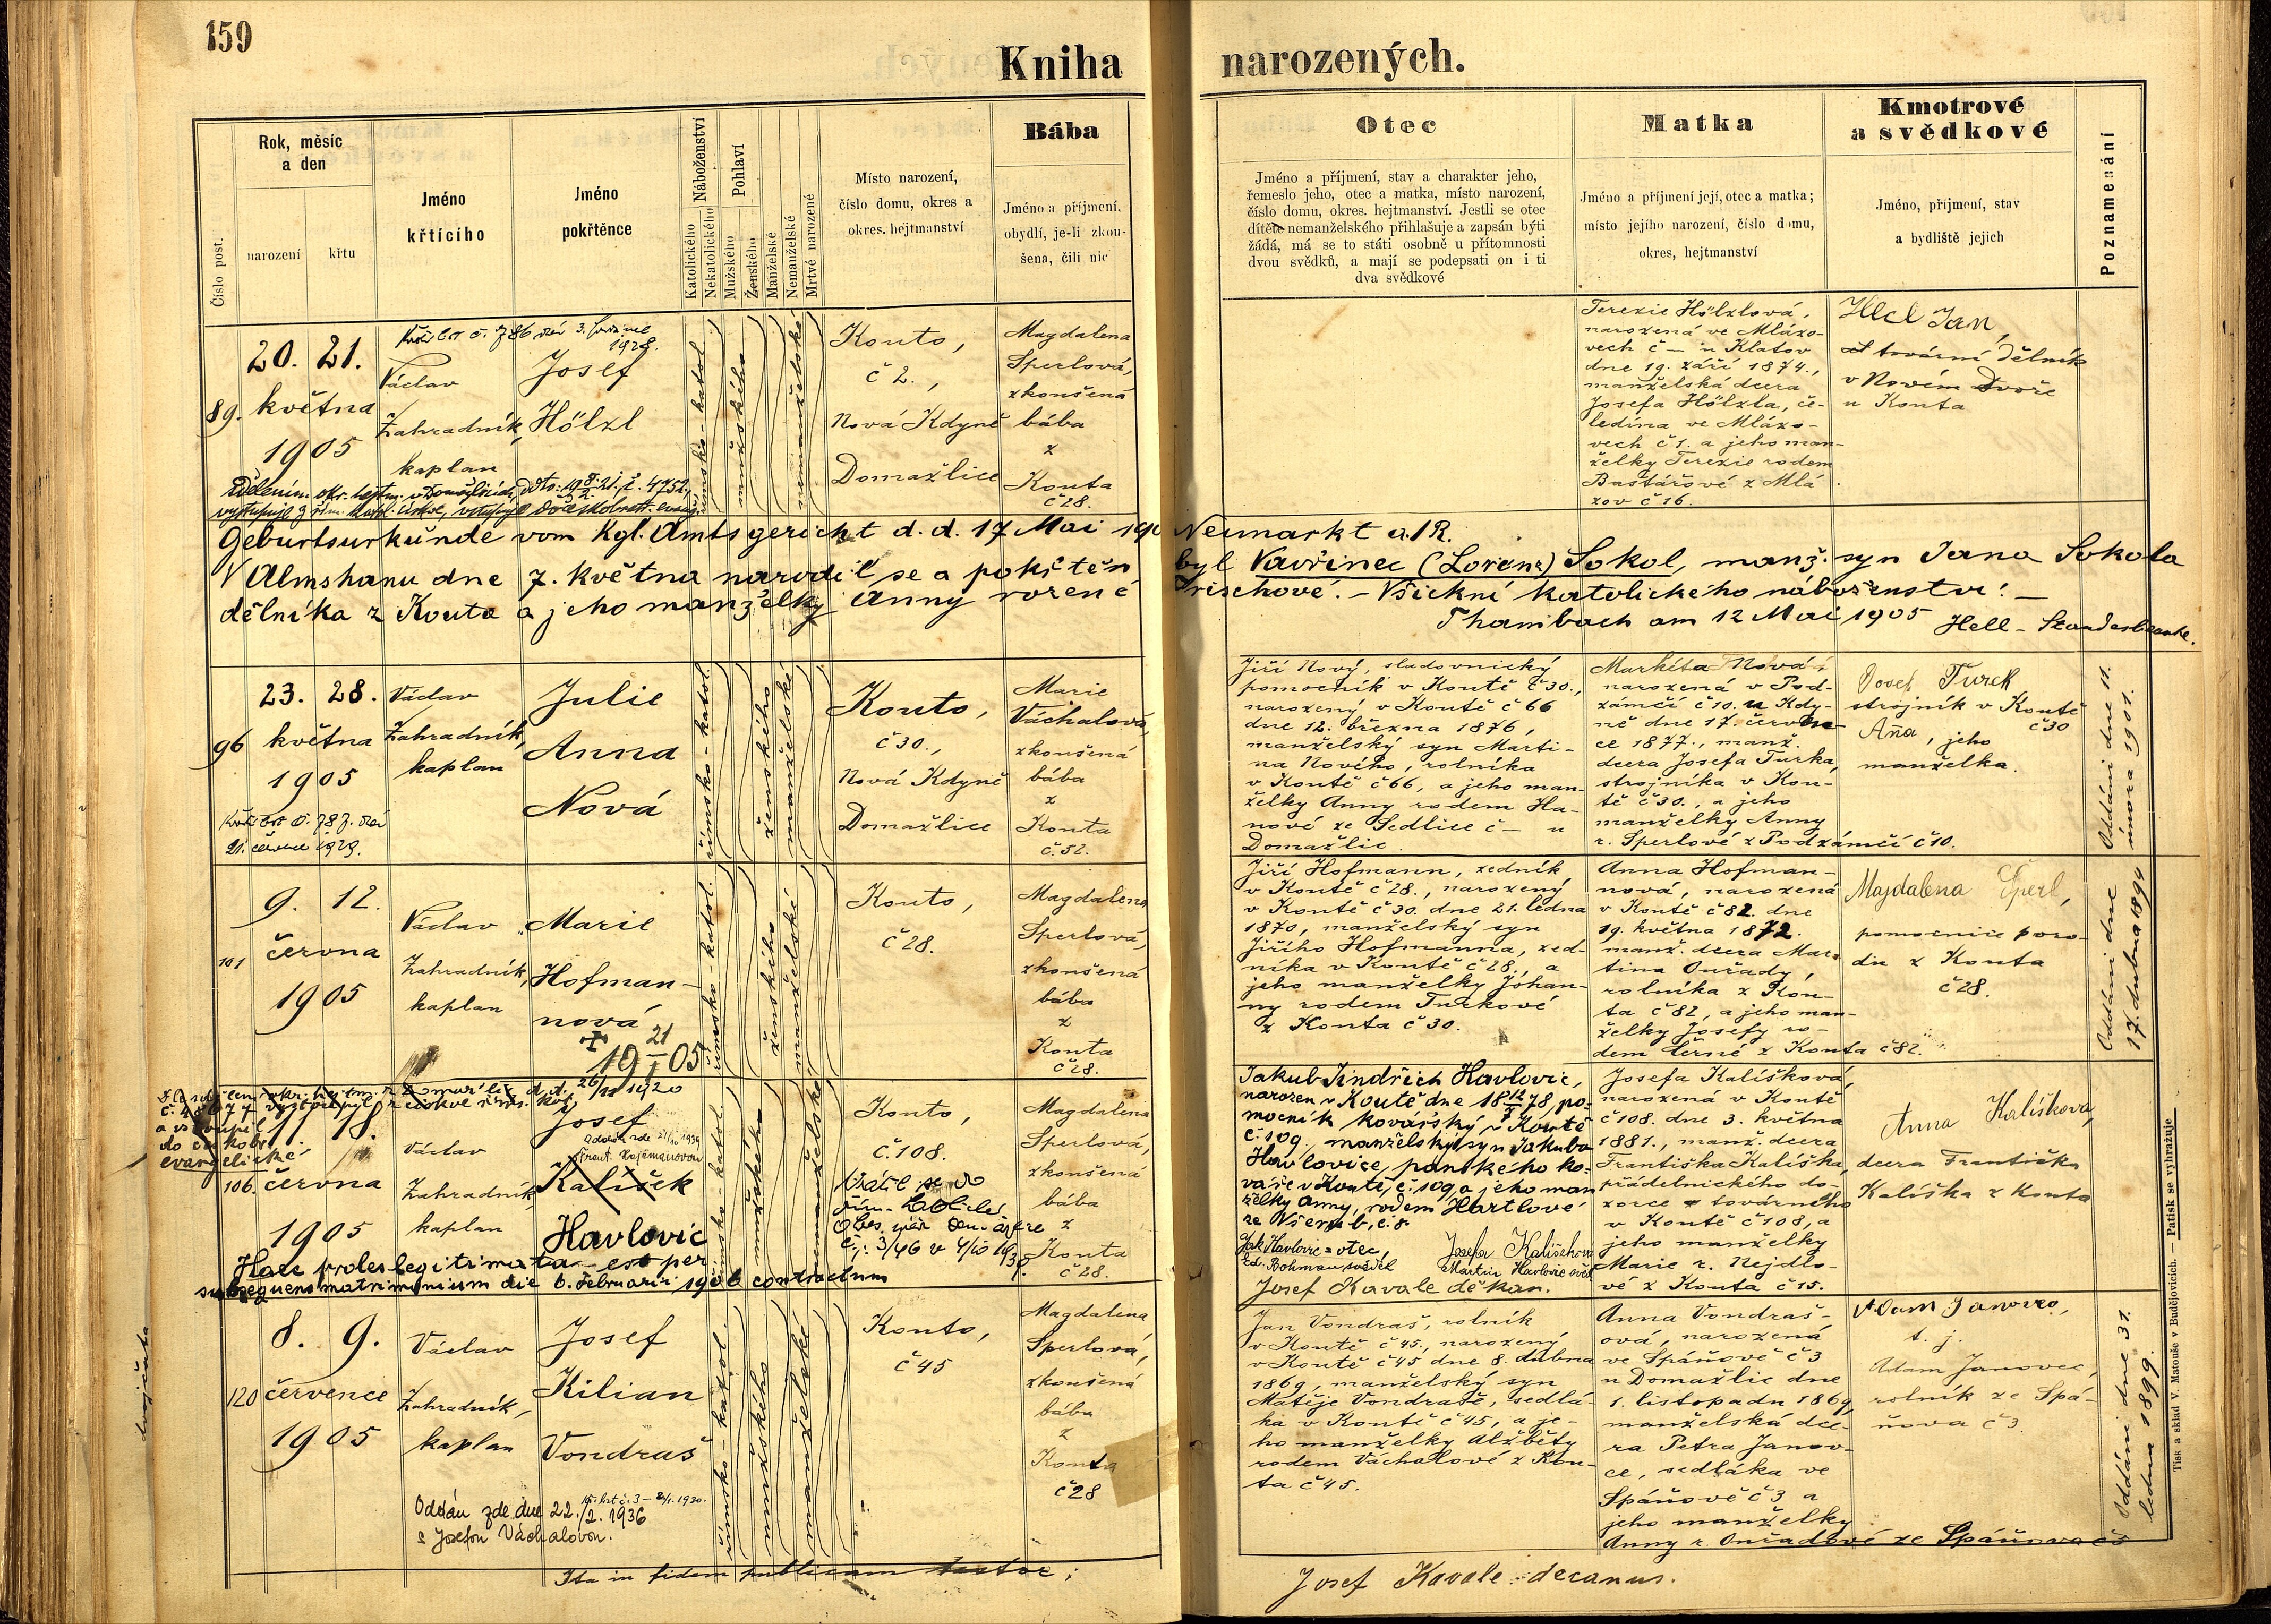 159
Kniha narozených.
Číslo post.
Rok, měsíc
a den
narození
křtu
Jméno
křtícího
Jméno
pokřtěnce
Náboženství
Katolického
Nekatolického
Pohlaví
Mužského
Ženského
Manželské
Nemanželské
Mrtvé narozené
Místo narození,
číslo domu, okres a
okres. hejtmanství
Bába
Jméno a příjmení,
obydlí, je-li zkou-
šena, čili nic
Otec
Jméno a příjmení, stav a charakter jeho,
řemeslo jeho, otec a matka, místo narození,
číslo domu, okres. hejtmanství. Jestli se otec
dítěte nemanželského přihlašuje a zapsán býti
žádá, má se to státi osobně u přítomnosti
dvou svědků, a mají se podepsati on i ti
dva svědkové
Matka
Jméno a příjmení její, otec a matka;
místo jejího narození, číslo domu,
okres, hejtmanství
Kmotrové
a svědkové
Jméno, příjmení, stav
a bydliště jejich
Poznamenání
89.
20. 21.
května
1905
1928.
Václav
Zahradník,
kaplan
Josef
Hölzl
římsko-katol.
mužského
nemanželské
Kouto,
č 2.,
Nová Kdyně
Domažlice
Magdalena
Sperlová,
zkoušená
bába
z
Kouta
č 28.
Terezie Hölzlová,
narozená ve Mlázo-
vech č – u Klatov
dne 19. září 1874.,
manželská dcera
Josefa Hölzla, če-
ledína ve Mlázo-
vech č 1. a jeho man-
želky Terezie rodem
Baštářové z Mlá
zov č 16.
Jan,
tovární dělník
v Novém Dvoře
u Kouta
Geburtsurkunde vom Kgl. Amtsgericht d. d. 17 Mai 190 Neumarkt a./R.
V Almshanu dne 7. května narodil se a pokřtěn byl Vavřinec (Lorenz) Sokol, manž. syn Jana Sokola
dělníka z Kouta a jeho manželky Anny rozené rischové. – Všickni katolického náboženství. –
Thambach am 12 Mai 1905 Hell – Standesbeamte.
96
23. 28.
května
1905
21. července 1929.
Václav
Zahradník,
kaplan
Julie
Anna
Nová
římsko-katol.
ženského
manželské
Kouto,
č 30.,
Nová Kdyně
Domažlice
Marie
Váchalová,
zkoušená
bába
z
Kouta
č. 52.
Jiří Nový, sladovnický
pomocník v Koutě č 30.,
narozený v Koutě č 66
dne 12. března 1876,
manželský syn Marti-
na Nového, rolníka
v Koutě č 66, a jeho man-
želky Anny rodem Ha-
nové ze Sedlice č – u
Domažlic.
Markéta Nová,
narozená v Pod-
zámčí č 10. u Kdy-
ně dne 17. červen-
ce 1877., manž.
dcera Josefa Turka,
strojníka v Kou-
tě č 30., a jeho
manželky Anny
r. Sperlové z Podzámčí č 10.
Josef Turek
strojník v Koutě
č 30
Aña, jeho
manželka.
Oddáni dne 11.
února 1901.
101
9. 12.
června
1905
Václav
Zahradník,
kaplan
Marie
Hofman-
nová
římsko-katol.
ženského
manželské
Kouto,
č 28.
Magdalena
Sperlová,
zkoušená
bába
z
Kouta
č 28.
Jiří Hofmann, zedník
v Koutě č 28., narozený
v Koutě č 30. dne 21. ledna
1870, manželský syn
Jiřího Hofmanna, zed-
níka v Koutě č 28., a
jeho manželky Johan-
ny rodem Turkové
z Kouta č 30.
Anna Hofman-
nová, narozená
v Koutě č 82. dne
19. května 1872.
manž. dcera Mar-
tina Ouřady,
rolníka z Kou-
ta č 82, a jeho man-
želky Josefy ro-
dem Černé z Kouta č 82.
Majdalena Šperl,
pomocnice poro-
du z Kouta
č 28.
Oddáni dne
17. dubna 1894
evangelické
106.
11. 18.
června
1905
Václav
Zahradník,
kaplan
Josef
Kalíšek
Havlovic
římsko-katol.
mužského
nemanželské
Kouto,
č. 108.
Magdalena
Sperlová,
zkoušená
bába
z
Kouta
č 28.
Haec proles legitimata est per
subsequens matrimonium die 6. Februarii 1906 contractum
Jakub Jindřich Havlovic,
narozen v Koutě dne 18 12/7 78, po-
mocník kovářský v Koutě
č. 109., manželský syn Jakuba
Havlovice, panského ko-
váře v Koutě, č. 109, a jeho man
želky Anny, rodem Hartlové
ze Všerub, č. 8.
Jak. Havlovic = otec,
Josef Kavale děkan.
Josefa Kalíšková,
narozená v Koutě
č 108. dne 3. května
1881., manž. dcera
Františka Kalíška,
přádelnického do-
zorce továrního
v Koutě č 108, a
jeho manželky
Marie r. Nejdlo-
vé z Kouta č 15.
Anna Kalíšková,
dcera Františka
Kalíška z Kouta
120
8. 9.
července
1905
Václav
Zahradník,
kaplan
Josef
Kilian
Vondraš
Oddán zde dne 22./2. 1936
s Josefou Váchalovou.
římsko-katol.
mužského
manželské
Kouto,
č 45
Magdalena
Sperlová,
zkoušená
bába
z
Kouta
č 28
Jan Vondraš, rolník
v Koutě č 45., narozený
v Koutě č 45 dne 8. dubna
1869, manželský syn
Matěje Vondraše, sedlá-
ka v Koutě č 45, a je-
ho manželky Alžběty
rodem Váchalové z Kou-
ta č 45.
Anna Vondraš-
ová, narozená
ve Spáňově č 3
u Domažlic dne
1. listopadu 1869,
manželská dce-
ra Petra Janov-
ce, sedláka ve
Spáňově č 3 a
jeho manželky
Anny r. Ouřadové ze Spáňova č 5
Adam Janovec,
t. j.
Adam Janovec,
rolník ze Spá-
ňova č 3.
Oddáni dne 31.
ledna 1899.
dvojčata
Ita in fidem publicam testor;
Josef Kavale decanus.
Tisk a sklad V. Matouše v Budějovicích. — Patisk se vyhražuje